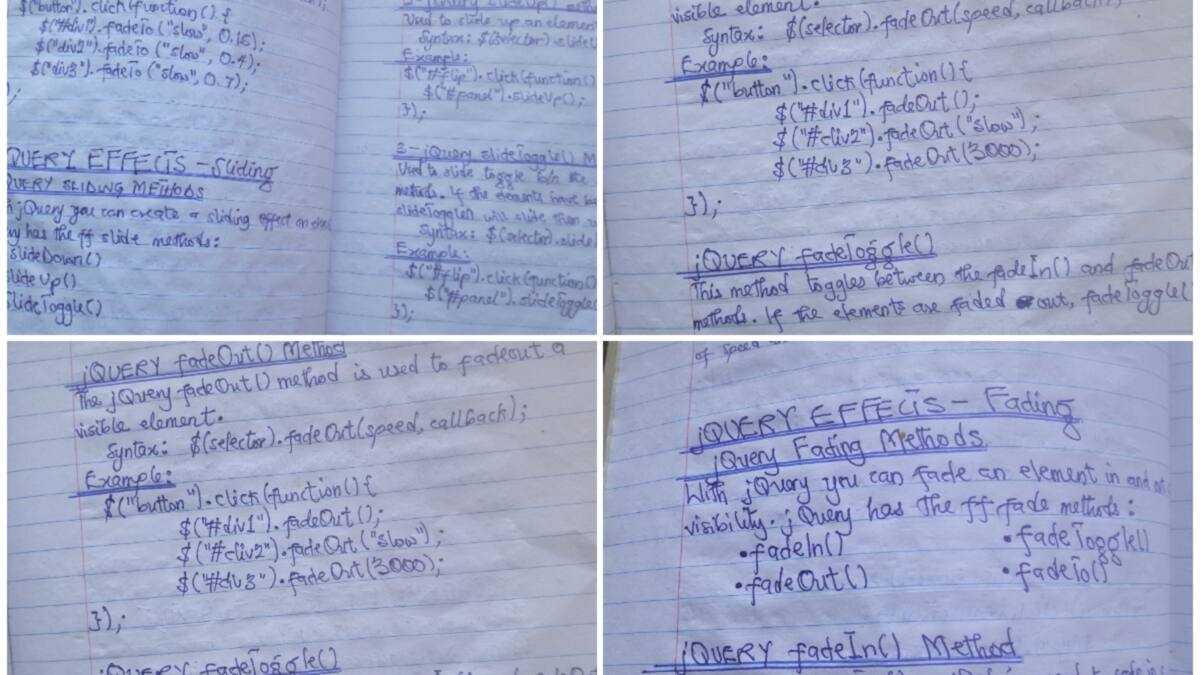 $("button").click(function() {
$("#div1").fadeTo("slow", 0.15);
$("div2").fadeTo("slow", 0.4);
$("div3").fadeTo("slow", 0.7);
);
QUERY EFFECTS - Sliding
QUERY SLIDING METHODS
jQuery you can create a sliding effect on
has the ff slide methods:
slideDown()
slide Up()
slideToggle()
Used to slide up an element
Syntax: $(selector).slideU
Example:
$("#flip").click(function()
$("#panel").slideUp();
});
3 - jQuery slideToggle() M
Used to slide toggle
methods. If the elements have
slideToggle() will slide them
Syntax: $(selector).slide
Example:
$("#flip").click(function()
$("#panel").slideToggle(
});
visible element.
Syntax: $(selector).fadeOut(speed, callback);
Example:
$("button").click(function(){
$("#div1").fadeOut();
$("#div2").fadeOut("slow");
$("#div3").fadeOut(3000);
});
jQUERY fadeToggle()
This method toggles between the fadeIn() and fadeOut
methods. If the elements are faded out, fadeToggle(
jQUERY fadeOut() Method
The jQuery fadeOut() method is used to fadeout a
visible element.
Syntax: $(selector).fadeOut(speed, callback);
Example:
$("button").click(function(){
$("#div1").fadeOut();
$("#div2").fadeOut("slow");
$("#div3").fadeOut(3000);
});
jQUERY fadeToggle()
of speed
jQUERY EFFECTS - Fading
jQuery Fading Methods
With jQuery you can fade an element in and of
visibility. jQuery has the ff fade methods:
•fadeIn() •fadeToggle()
•fadeOut() •fadeTo()
jQUERY fadeIn() Method